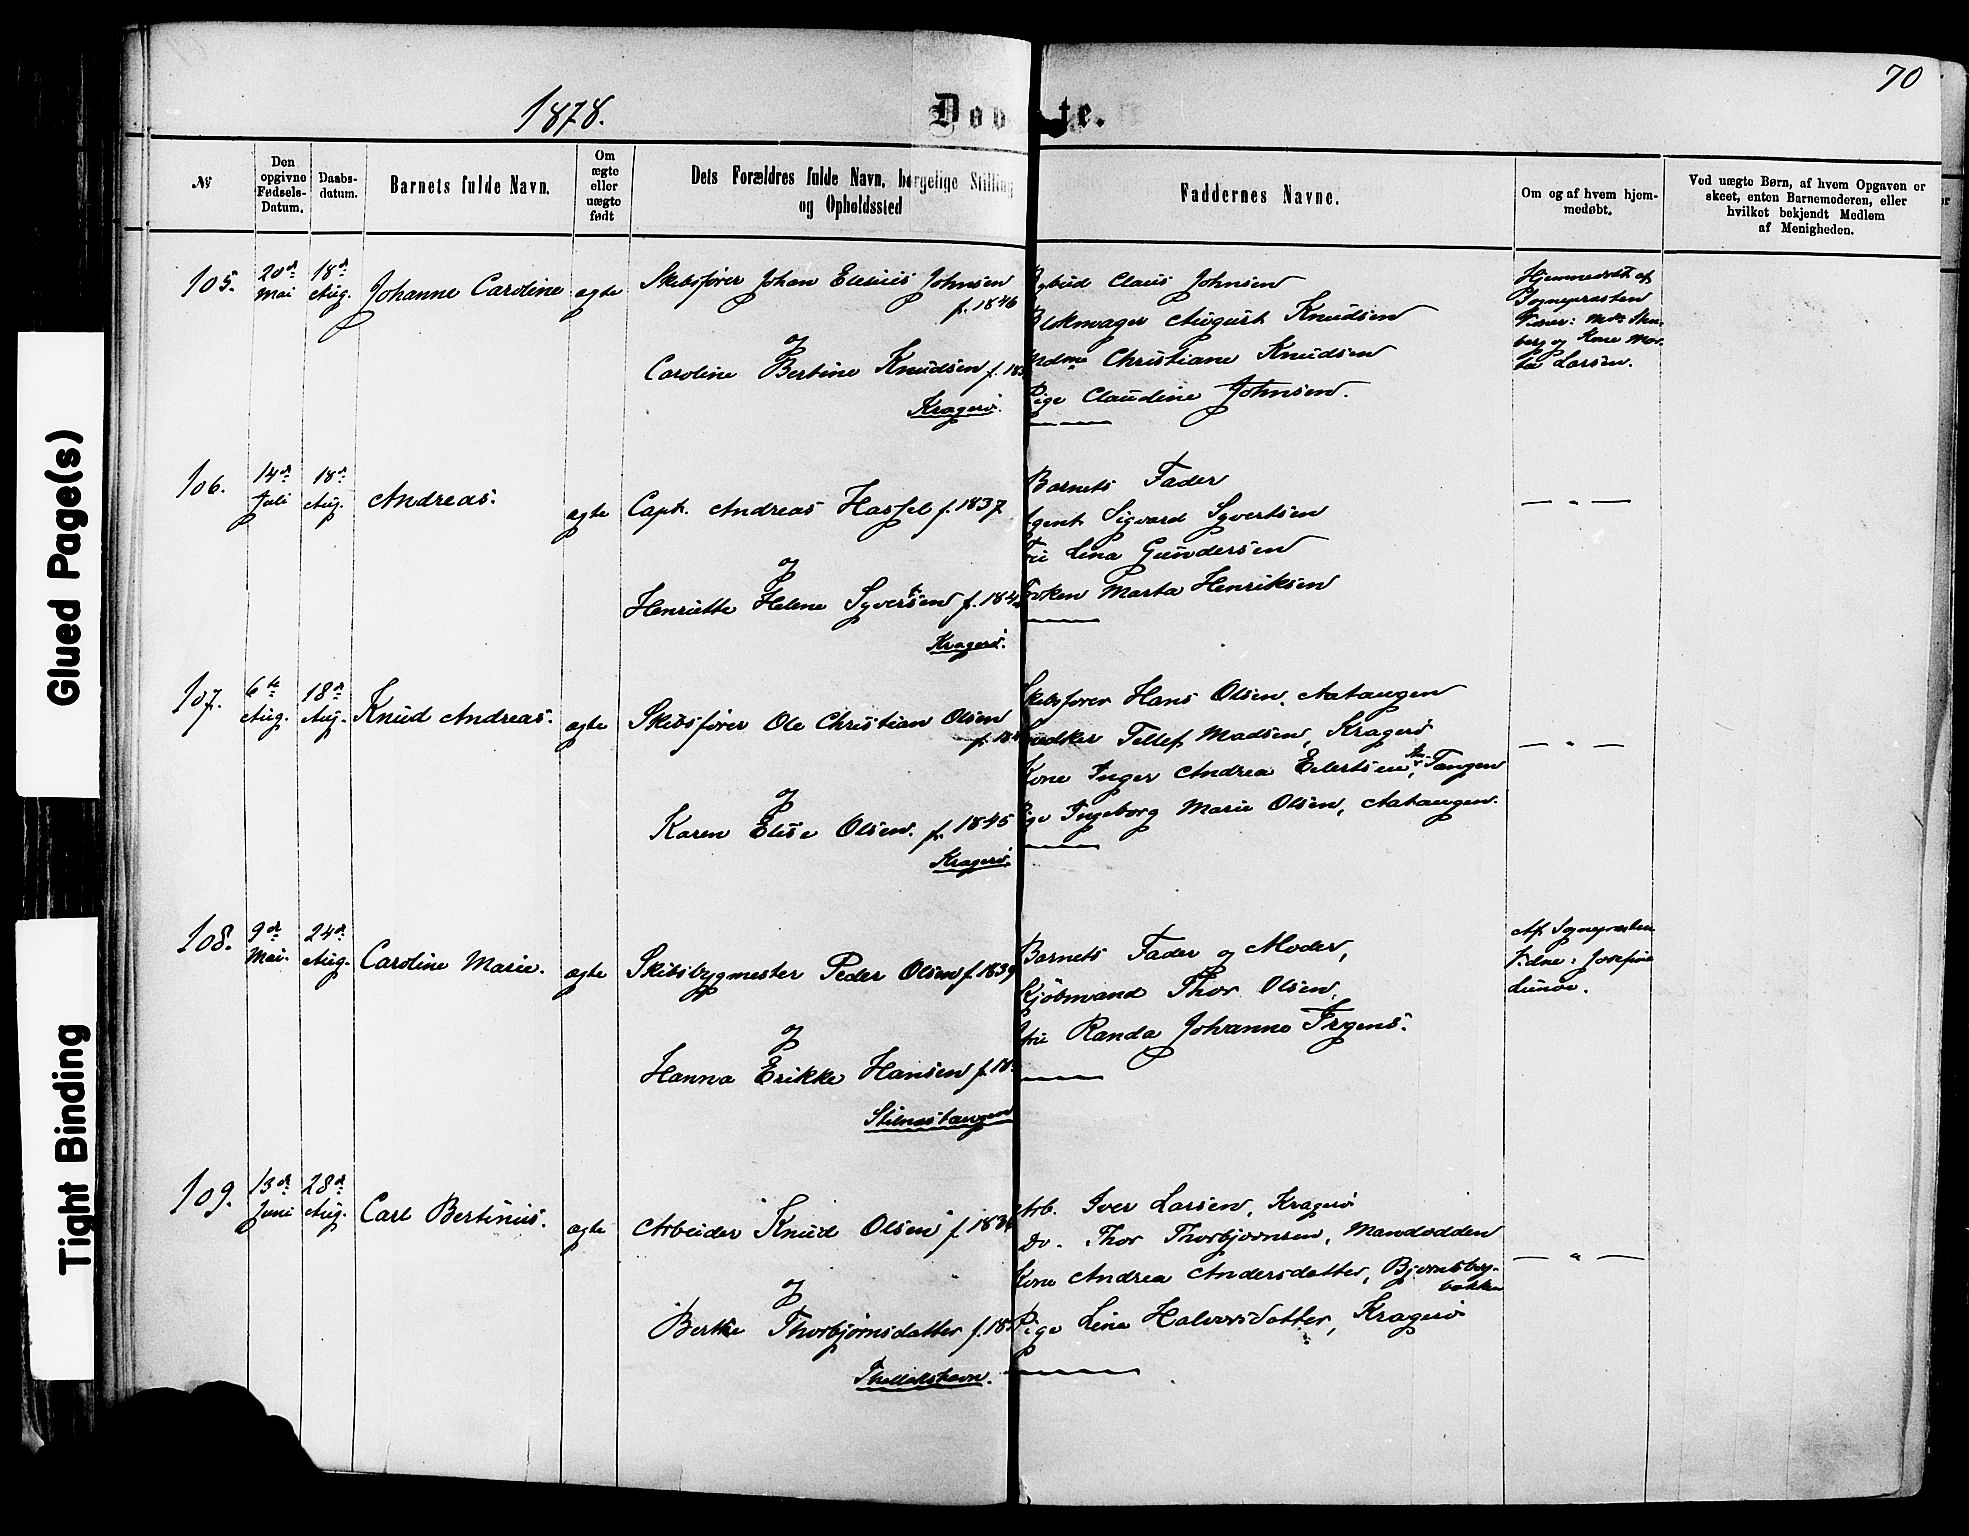 Glued Page(s)
Tight Binding
70
1878.
Døb te.
№
Den opgivne Fødsels-Datum.
Daabs-datum.
Barnets fulde Navn.
Om ægte eller uægte født
Dets Forældres fulde Navn, borgelige Stilling
og Opholdssted
Faddernes Navne.
Om og af hvem hjem-
medøbt.
Ved uægte Børn, af hvem Opgaven er
skeet, enten Barnemoderen, eller
hvilket bekjendt Medlem
af Menigheden.
105. 20de Mai 18de Aug. Johanne Caroline ægte
Skibsfører Johan Elesius Johnsen
f. 1846
og
Caroline Bertine Knudsen f. 18
Kragerø.
Bybud Claus Johnsen
Blokmager August Knudsen
Mdme Christiane Knudsen
Pige Claudine Johnsen.
Hjemmedøbt af
Sognepræsten
Vidner: Md. Sten-
berg og Kone Mar-
ta Larsen.
106. 14de Juli 18de Aug. Andreas. ægte
Capt. Andreas Hassel f. 1837
og
Henriette Helene Syvertsen f. 184
Kragerø.
Barnets Fader
Agent Sigvard Syvertsen
Fru Lina Gundersen
Frøken Marta Henriksen
— " —
107. 6te Aug. 18de Aug. Knud Andreas. ægte
Skibsfører Ole Christian Olsen
f. 18
og
Karen Elise Olsen. f. 1845
Kragerø.
Skibsfører Hans Olsen, Aatangen
Snedker Tellef Madsen, Kragerø
Kone Inger Andrea Eilertsen, Tangen
Pige Ingeborg Marie Olsen, Aatangen.
— " —
108. 9de Mai. 24de Aug. Caroline Marie. ægte
Skibsbygmester Peder Olsen f. 1839
og
Hanna Erikke Hansen f. 18
Stilnestangen
Barnets Fader og Moder,
Kjøbmand Thor Olsen,
Fru Randa Johanne Trgens.
Af Sognepræsten
Vidne: Josefine
Lunøe.
109. 13de Juni 28de Aug. Carl Bertinius. ægte
Arbeider Knud Olsen f. 183
og
Berthe Thorbjørnsdatter f. 18
Thellekshavn.
Arb. Iver Larsen, Kragerø
Do. Thor Thorbjørnsen, Mandodden
Kone Andrea Andersdatter, Bjørnsbog-
bakken
Pige Lina Halvorsdatter, Kragerø
— " —